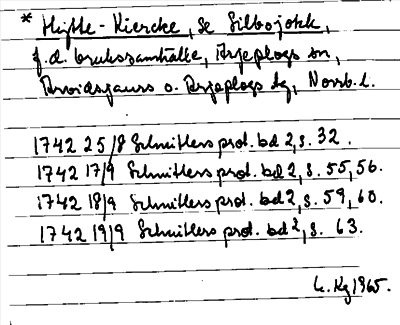 * Hytte-Kiercke, se Silbojokk,
f.d. brukssamhälle, Arjeplogs sn,
Arvidsjaurs o. Arjeplogs tg, Norrb. l.
1742 25/8 Schnitlers prot. bd 2, s. 32.
1742 17/9 Schnitlers prot. bd 2, s. 55, 56.
1742 18/9 Schnitlers prot. bd 2, s. 59, 60.
1742 19/9 Schnitlers prot. bd 2, s. 63.
L. Kg 1965.